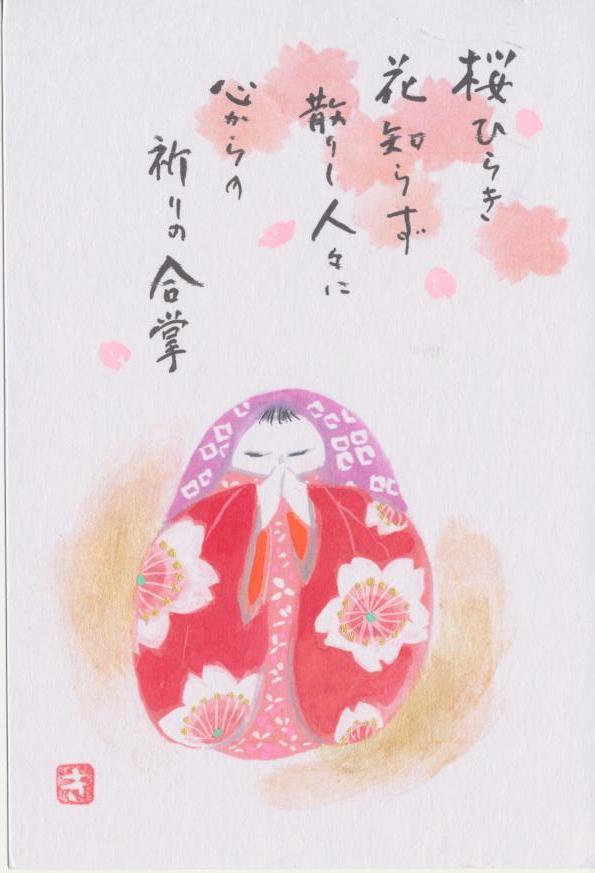 桜ひらき
花知らず
散りし人々に
心からの
祈りの合掌